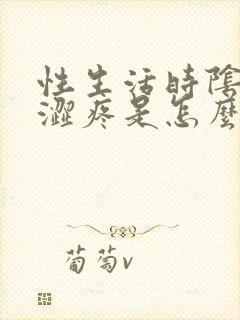 性生活時陰
澀疼是怎麼
葡萄v